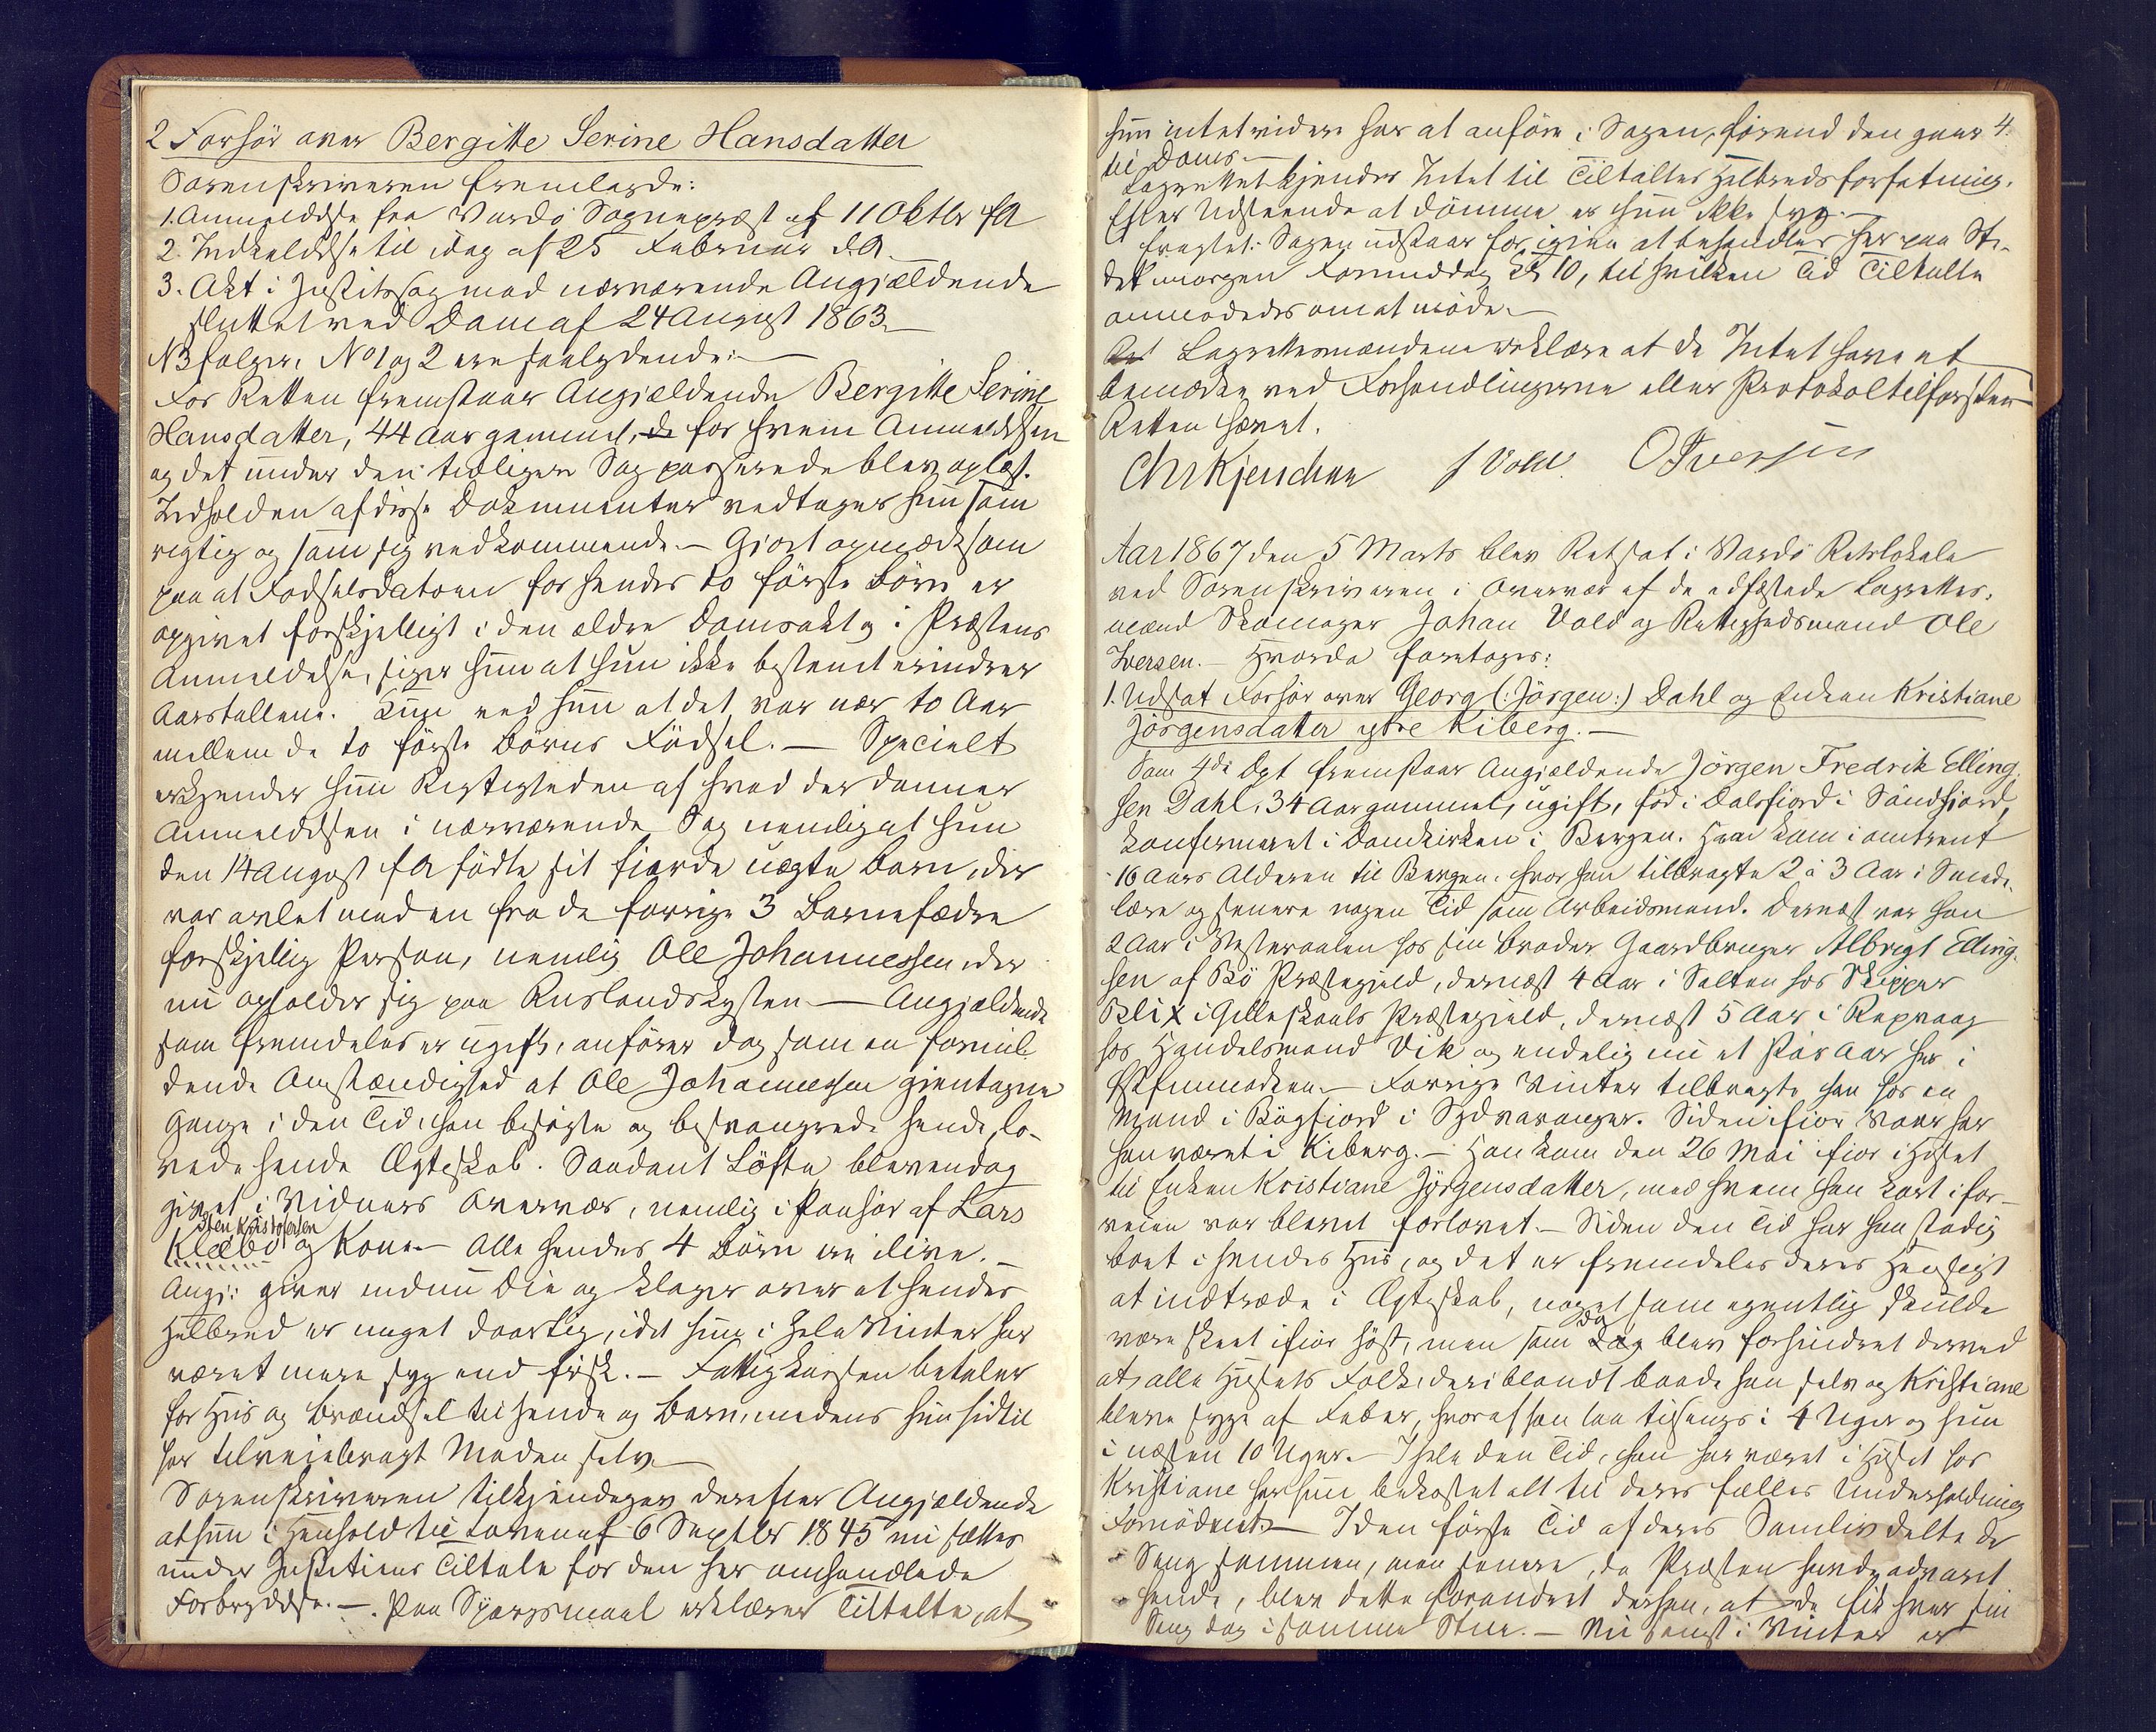 2 Forhör over Bergitte Serine Hansdatter
Sorenskriveren fremlagde:
1. Anmeldelse fra Vardö Sognepræst af 11 Oktbr f A
2. Indkaldelse til idag af 25 Februar d. A.
3. Akt i Justitssag mod nærværende Angjældende
sluttet ved Dom af 24 August 1863.
NB følger. No 1 og 2 ere saalydende:
For Retten fremstaar Angjældende Bergitte Serine
Hansdatter, 44 Aar gammel, de for hvem Anmeldelsen
og det under den tidligere Sag passerede blev oplæst.
Indholden af disse Dokumenter vedtages hun som
rigtig og som sig vedkommende. — Gjort opmærksom
paa at Fødselsdatoen for hendes to förste Börn er
opgivet forskjelligt i den ældre Domsakt og i Præstens
Anmeldelse, siger hun at hun ikke bestemt erindrer
Aarstallene. Kun ved hun at det var nær to Aar
mellem de to förste Börns Födsel. — Specielt
erkjender hun Rigtigheden af hvad der danner
Anmeldelsen i nærværende Sag nemlig at hun
den 14 August f A födte sit fjerde uægte Barn, der
var avlet med en fra de forrige 3 Barnefædre
forskjellig Person, nemlig Ole Johannessen der
nu opholder sig paa Ruslandskysten — Angjældende
som fremdeles er ugift, anförer dog som en formil-
dende Omstændighed at Ole Johannessen gjentagne
Gange i den Tid, han besögte og besvangrede hende, lo-
vede hende Ægteskab. Saadant Löfte blev endog
givet i Vidners Overvær, nemlig i Paahör af Lars
Sten Kristofersen
Klæbo og Kone. — Alle hendes 4 Börn ere ilive. —
Angj: giver endnu Die og klager over at hendes
Helbred er meget daarlig, idet hun i hele Vinter har
været mere syg end frisk. — Fattigkassen betaler
for Hus og Brændsel til hende og Barn, medens hun hidtil
har tilveiebragt Maden selv. —
Sorenskriveren tilkjendegav derefter Angjældende
at hun i Henhold til Loven af 6 Septbr 1845 nu sættes
under Justitiens Tiltale for den her omhandlede
Forbrydelse. — Paa Spörgsmaal erklærer Tiltalte, at
hun intet videre har at anföre i Sagen, förend den gaar 4.
til Doms. —
Lagrettet kjender Intet til Tiltaltes Helbredsforfatning.
Efter Udseende at dömme er hun ikke syg. —
fragtet: Sagen udstaar for igjen at behandles her paa Ste-
det morgen Formiddag Kl 10, til hvilken Tid Tiltalte
anmodedes om at möde. —
Det Lagrettesmændene erklære at de Intet have at
bemærke ved Forhandlingerne eller Protokoltilførslen
Retten hævet.
Chr Kjerschow J Vold. O Iversen
Aar 1867 den 5 Marts blev Ret sat i Vardö Retslokale
ved Sorenskriveren i Overvær af de edfæstede Lagrettes-
mænd Skomager Johan Vold og Rettighedsmand Ole
Iversen. — Hvorda foretoges:
1. Udsat Forhör over Georg (: Jörgen:) Dahl og Enken Kristiane
Jörgensdatter ytre Kiberg. —
Som 4de Dpt fremstaar Angjældende Jörgen Fredrik Elling-
sen Dahl, 34 Aar gammel, ugift, föd i Dalsfjord i Söndfjord,
konfirmeret i Domkirken i Bergen. Han kom i omtrent
16 Aars Alderen til Bergen, hvor han tilbragte 2 à 3 Aar i Smede-
lære og senere nogen Tid som Arbeidsmand. Dernæst var han
2 Aar i Vesteraalen hos sin Broder Gaardbruger Albrigt Elling-
sen af Bö Præstegjeld, dernæst 4 Aar i Salten hos Skipper
Blix i Gilleskaals Præstegjeld, dernæst 5 Aar i Repvaag
hos Handelsmand Vik og endelig nu et Par Aar her i
Östfinmarken. — Forrige Vinter tilbragte han hos en
Mand i Bögfjord i Sydvaranger. Siden ifjor Vaar har
han været i Kiberg. — Han kom den 26 Mai ifjor i Huset
til Enken Kristiane Jörgensdatter, med hvem han kort i for-
veien var blevet forlovet. — Siden den Tid har han stadig
boet i hendes Hus, og det er fremdeles deres Hensigt
at indtræde i Ægteskab, noget som egentlig skulde
være skeet ifjor höst, men som dog blev forhindret derved
at alle Husets Folk, deriblandt baade han selv og Kristiane
bleve syge af Feber, hvoraf han laa tilsengs i 4 Uger og hun
i næsten 10 Uger. — I hele den Tid, han har været i Huset hos
Kristiane har hun bekostet alt til deres fælles Underholdning
Fornödent. — I den förste Tid af deres Samliv delte de
Seng sammen, men senere, da Præsten havde advaret
hende, blev dette forandret derhen, at de fik hver sin
Seng dog i samme Stue. — Nu langt i Vinter er